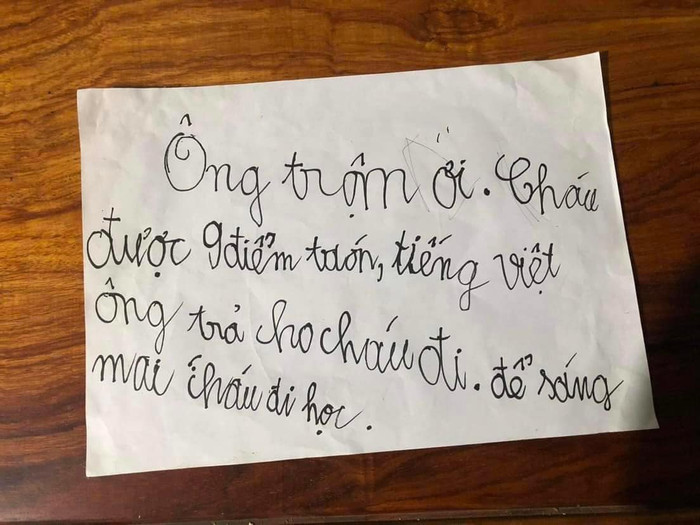 Ông trộm ơi. Cháu
được 9 điểm toán, tiếng việt
ông trả cho cháu đi. để sáng
mai cháu đi học.